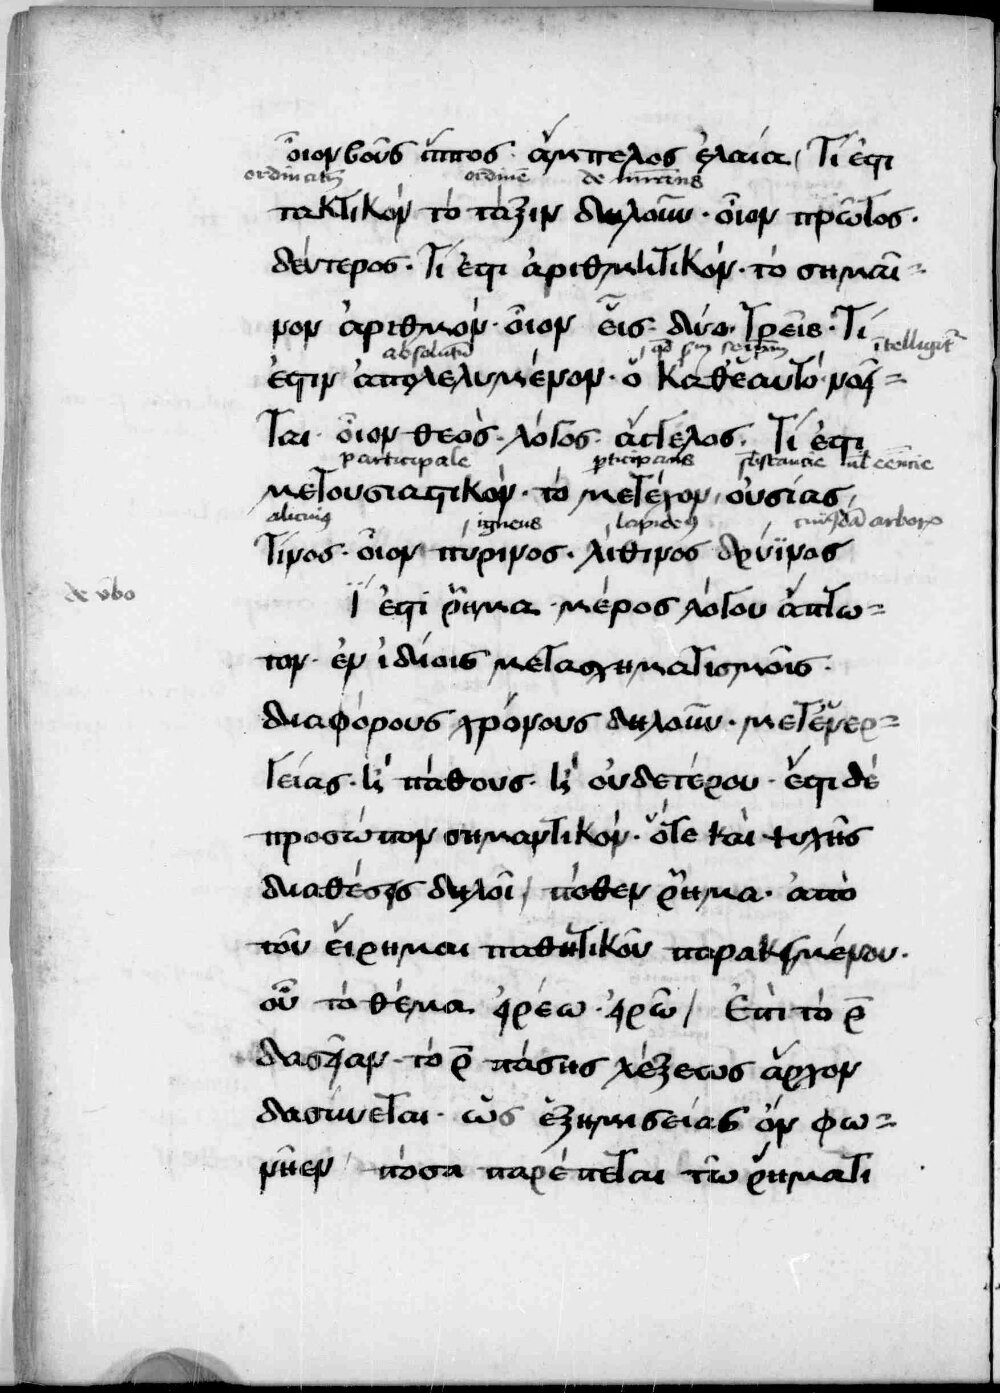 οἷον βοῦς ἵππος· ἄμπελος ἐλαία, Τί ἐστι
ordinatiuū ordinē de nūciāns
τακτικόν τὸ τάξιν δηλοῦν· οἷον πρῶτος·
δεύτερος· Τί ἐστι ἀριθμητικόν· τὸ σημαῖ=
νον ἀριθμόν· οἷον εἷς· δύο· τρεῖς· Τί
absolutū itelligit᷑
ἐστιν ἀπολελυμένον· ὃ καθ᾽ ἑαυτὸ νοεῖ=
ται· οἷον θεός· λόγος· ἄγγελος· Τί ἐστι
participale ꝑticipans sbstancie ul̄ eēncie
μετουσιαστικόν· τὸ μετέχον, οὐσίας,
alicuiꝰ igneus lapideꝰ cuiusdā arboris
τινος· οἷον πύρινος· λίθινος δρύϊνος
de ṽbo
Τί ἐστι ῥῆμα· μέρος λόγου ἄπτω=
τον· ἐν ἰδίοις μετασχηματισμοῖς·
διαφόρους χρόνους δηλοῦν· μετ᾽ ἐνερ=
γείας· ἢ πάθους· ἢ οὐδετέρου· ἔστι δὲ
προσώπων σημαντικόν· ὅτε καὶ ψυχῆς
διαθέσεις δηλοῖ, πόθεν ῥῆμα· ἀπὸ
τοῦ εἴρημαι παθητικοῦ παρακειμένου·
οὗ τὸ θέμα εἰρέω· εἰρῶ, Ἐπὶ τὸ ρ̄
δασεῖαν· τὸ ρ̄ πάσης λέξεως ἄρχον
δασύνεται· ὡς ἐξημισείας ὂν φω=
νῆεν, πόσα παρέπεται τῶ ῥήματι